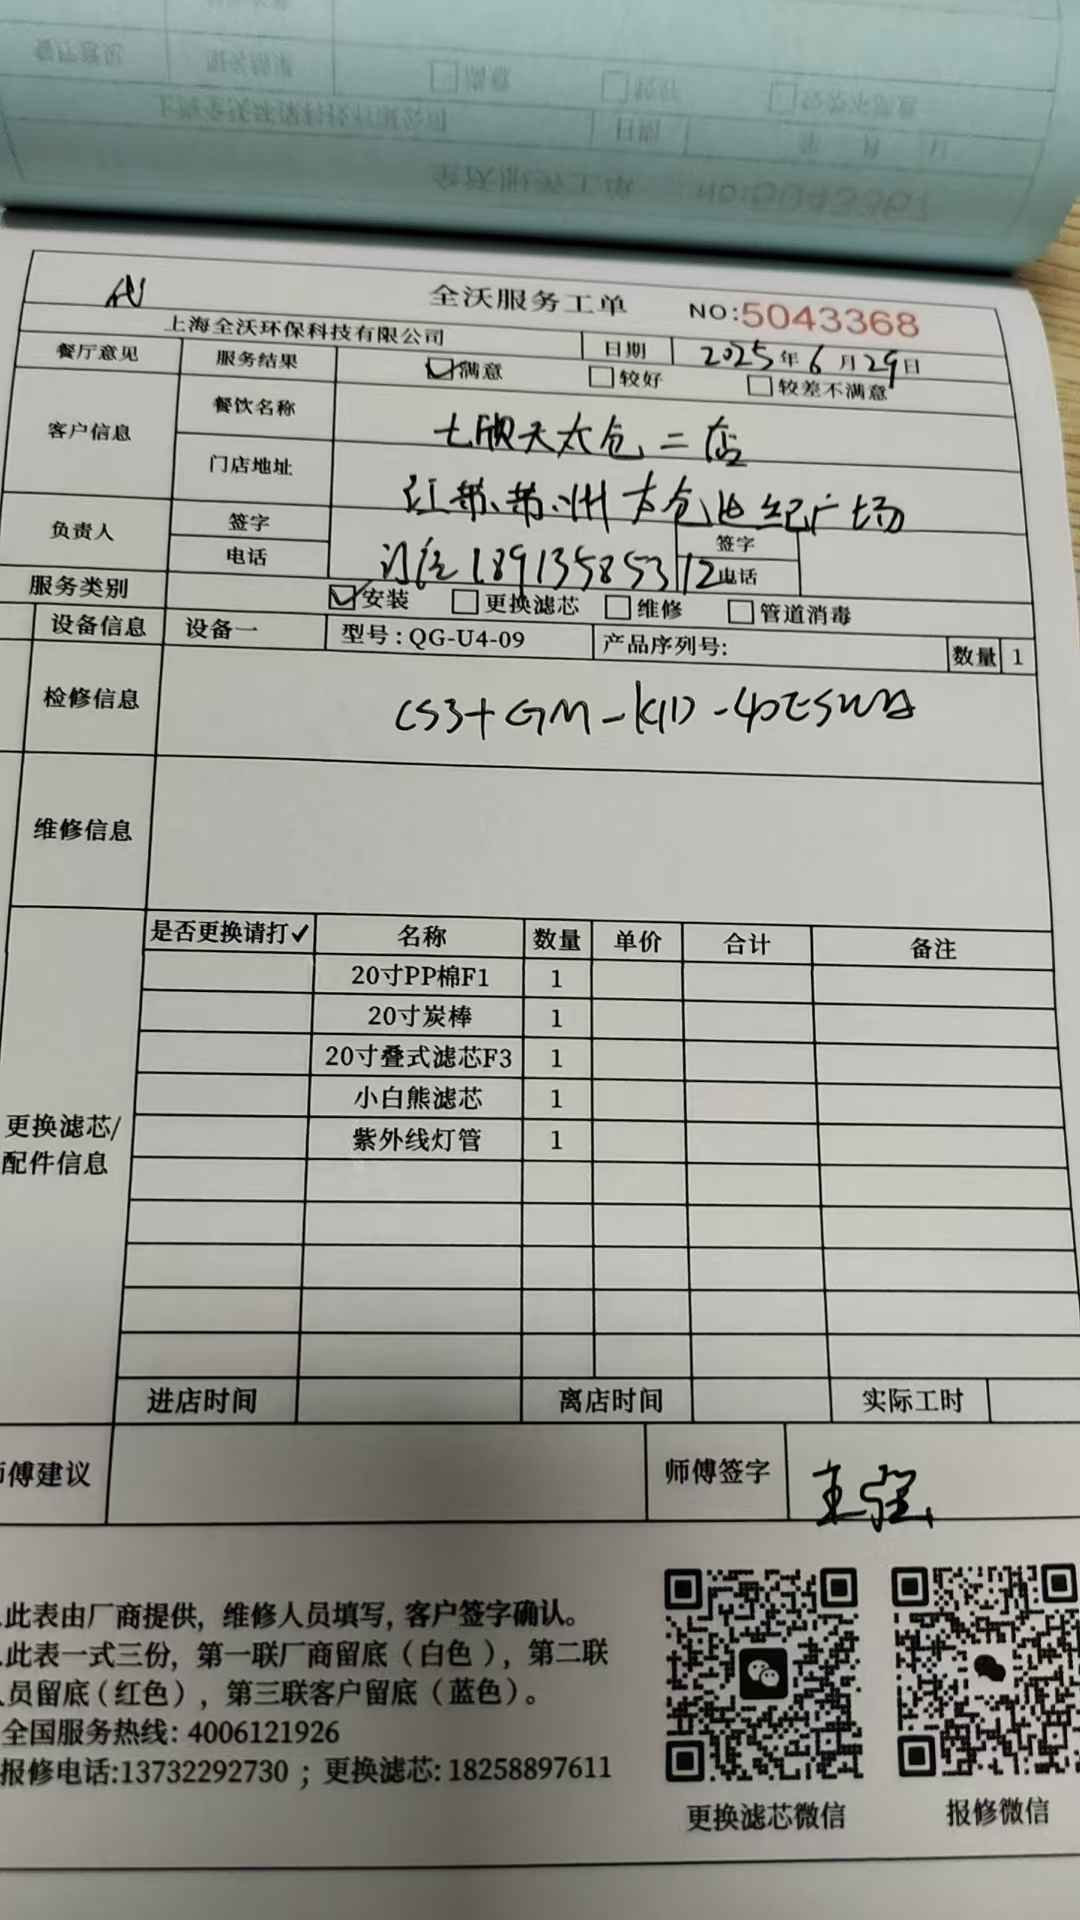 全沃服务工单 NO:5043367
代 全沃服务工单 NO:5043368
上海全沃环保科技有限公司 日期 2025年6月29日
餐厅意见 服务结果 ☑满意 □较好 □较差不满意
客户信息 餐饮名称 七欣天太仓二店
门店地址 江苏苏州太仓世纪广场
负责人 签字 签字
电话 18913585312 电话
服务类别 ☑安装 □更换滤芯 □维修 □管道消毒
设备信息 设备一 型号:QG-U4-09 产品序列号: 数量 1
检修信息
维修信息
是否更换请打✓ 名称 数量 单价 合计 备注
20寸PP棉F1 1
20寸炭棒 1
20寸叠式滤芯F3 1
小白熊滤芯 1
紫外线灯管 1
更换滤芯/
配件信息
进店时间 离店时间 实际工时
师傅建议 师傅签字 王强
.此表由厂商提供，维修人员填写，客户签字确认。
.此表一式三份，第一联厂商留底（白色），第二联
人员留底（红色），第三联客户留底（蓝色）。
全国服务热线: 4006121926
报修电话:13732292730 ；更换滤芯: 18258897611
更换滤芯微信 报修微信